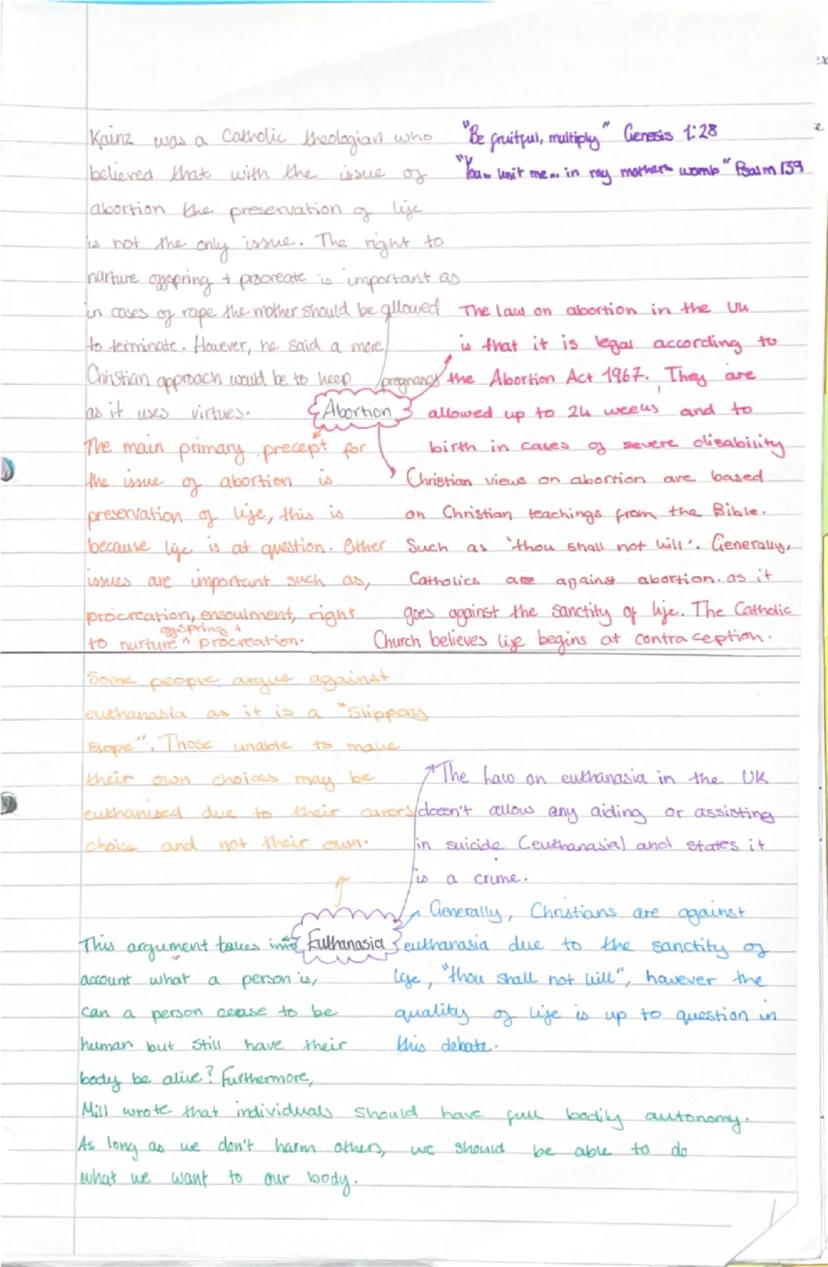 Kainz was a Catholic theologian who
believed that with the issue of
abortion the preservation of life
is not the only issue. The right to
nurture offspring + procreate is important as
in cases of rape the mother should be allowed
to terminate. However, he said a more
Christian approach would be to keep pregnancy
as it uses virtues.
"Be fruitful, multiply" Genesis 1:28
"You... knit me... in my mothers womb" Psalm 139
The law on abortion in the UK
is that it is legal according to
the Abortion Act 1967. They are
allowed up to 24 weeks and to
birth in cases of severe disability
Abortion
The main primary precept for
the issue of abortion is
preservation of life, this is
because life is at question. Other
issues are important such as,
procreation, ensoulment, right
to nurture ^ offspring + procreation.
Christian views on abortion are based
on Christian teachings from the Bible.
Such as 'thou shall not kill'. Generally,
Catholics are against abortion. as it
goes against the sanctity of life. The Catholic
Church believes life begins at contraception.
Some people argue against
euthanasia as it is a "Slippery
slope". Those unable to make
their own choices may be
euthanised due to their carers
choice and not their own.
The Law on euthanasia in the UK
doesn't allow any aiding or assisting
in suicide (euthanasia) and states it
is a crime.
Euthanasia
Generally, Christians are against
euthanasia due to the sanctity of
life, "thou shall not kill", however the
quality of life is up to question in
this debate.
This argument takes into
account what a person is,
can a person cease to be
human but still have their
body be alive? Furthermore,
Mill wrote that individuals should have full bodily autonomy.
As long as we don't harm others, we should be able to do
what we want to our body.